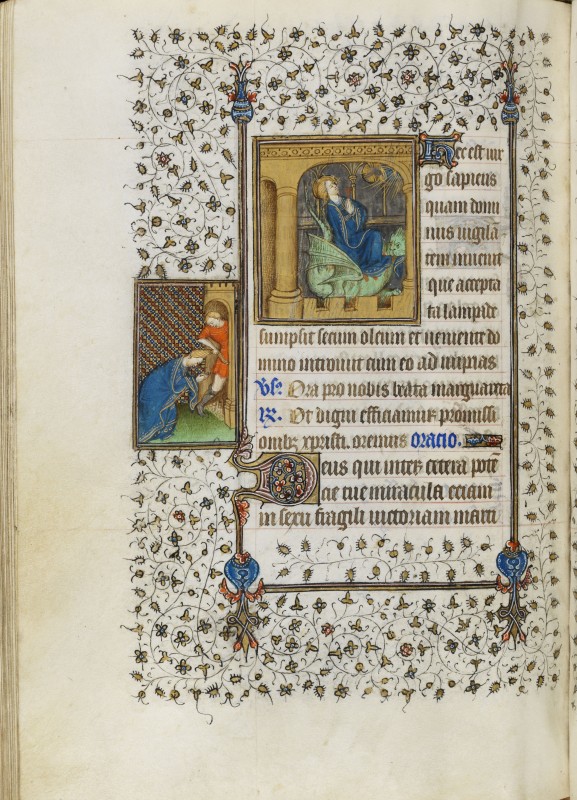 Hec est uir
go sapiens
quam domi
nus uigilā
tem inuenit
que accepta
ta lampide
sumpsit secum oleum et ueniente do
mino introiuit cum eo ad nupcias
Vs. Ora pro nobis beata margareta
R. Ut digni efficiamur promissi
onibz xpristi. oremus Oracio.
Deus qui inter cetera potē
cie tue miracula eciam
in sexu fragili uictoriam marti